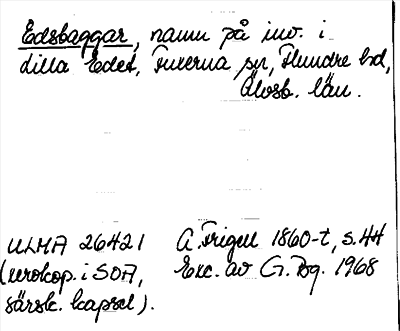 Edsbaggar, namn på inv. i
Lilla Edet, Fuxerna sn, Flundre hd,
Älvsb. län.
ULMA 26421 A. Frigell 1860-t, s. 44
(xerokop. i SOA, Exc. av G. Bg. 1968
särsk. kapsel).